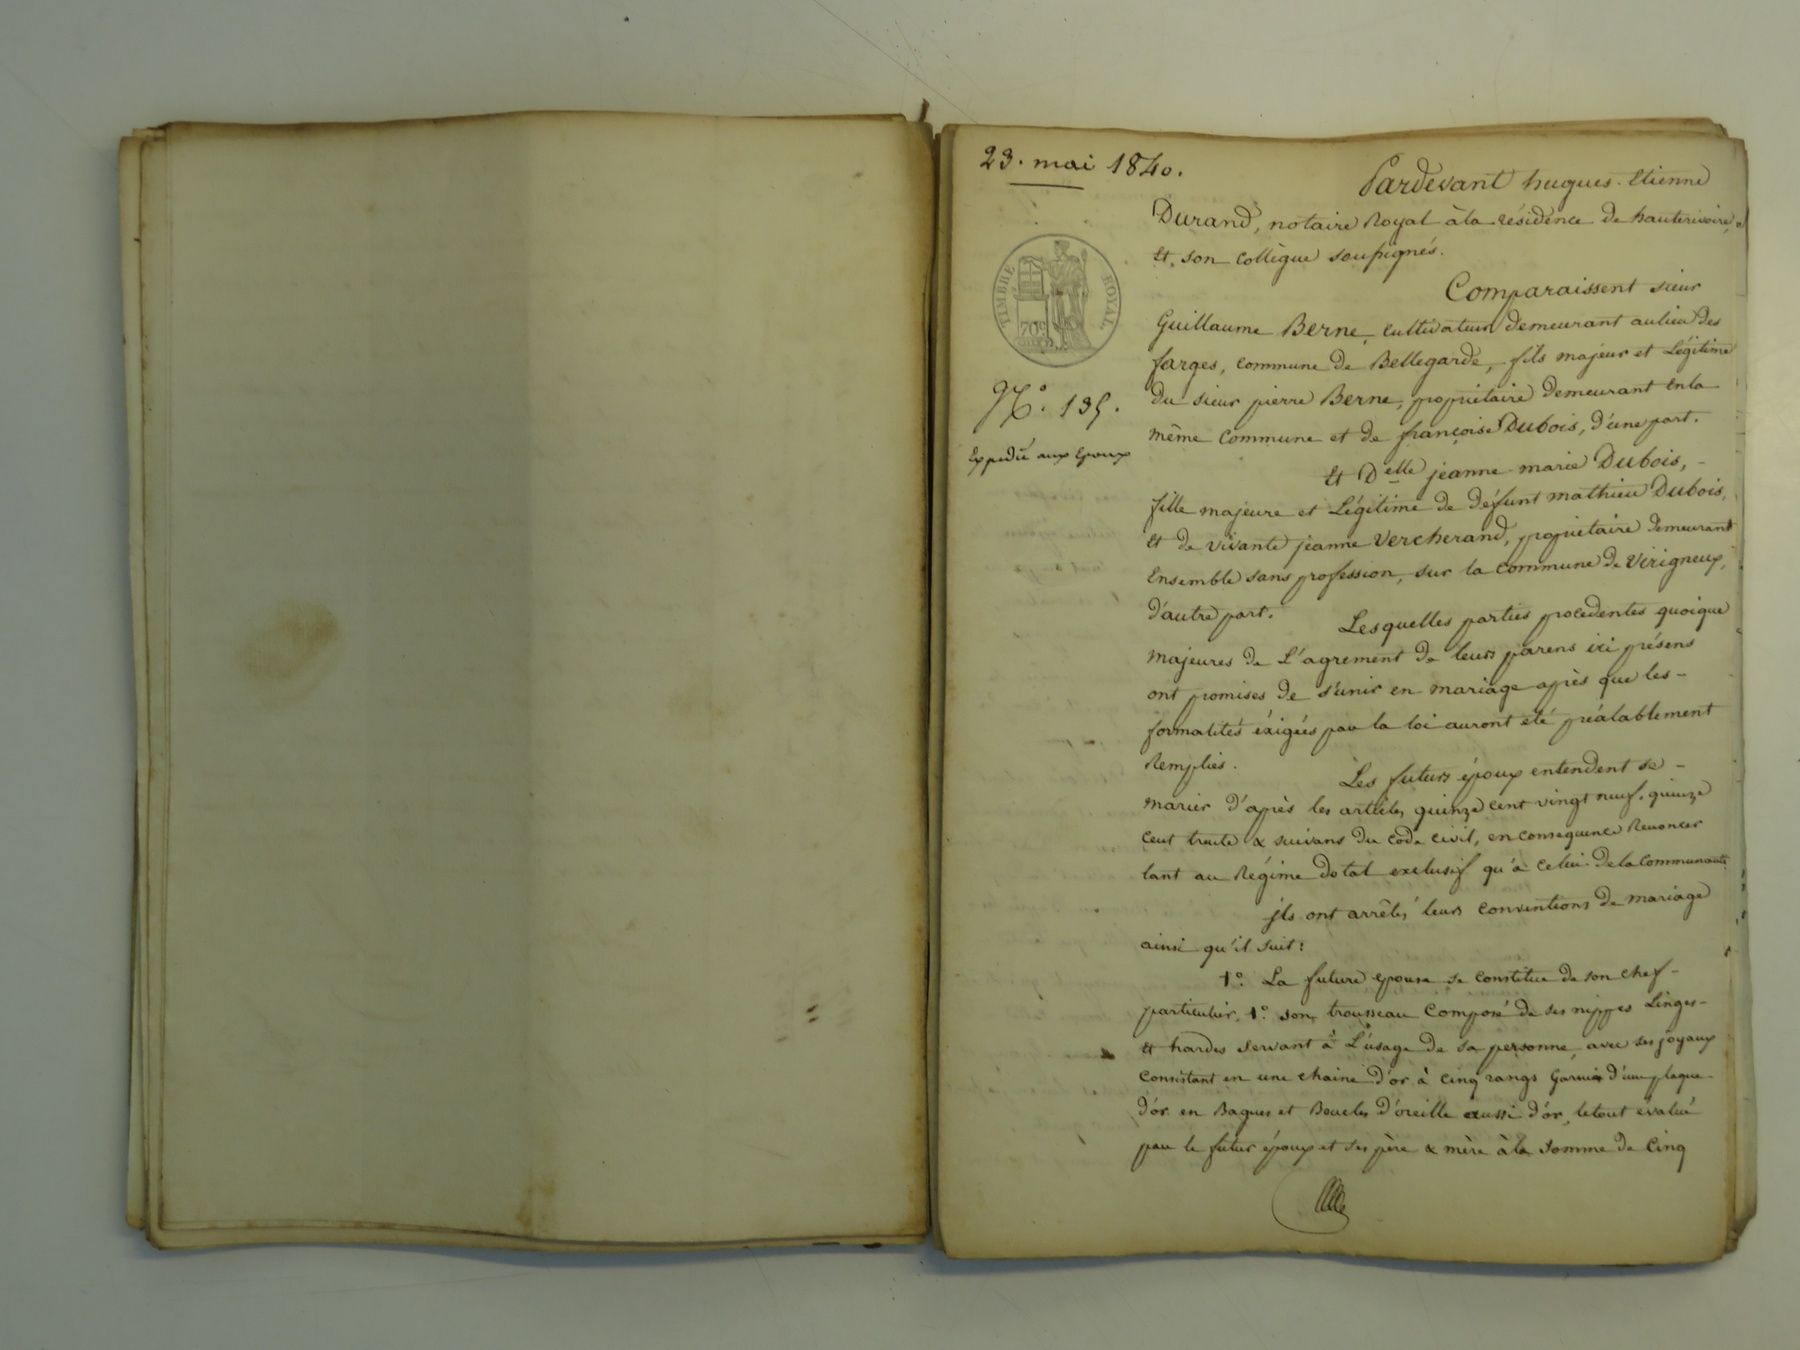 23. mai 1840.
Pardevant hugues-Etienne
Durand, notaire Royal à la résidence de hauterivoire,
Et son collègue soussignés.
TIMBRE ROYAL.
70c
Comparaissent sieur
Guillaume Berne, cultivateur demeurant au lieu des
farges, commune de Bellegarde, fils majeur et Légitime
du sieur pierre Berne, propriétaire demeurant en la
même commune et de françoise Dubois, d'une part.
N.o 135.
Expédié aux Epoux
Et Delle jeanne-marie Dubois, -
fille majeure et Légitime de défunt mathieu Dubois,
et de vivante jeanne Vercherand, propriétaire demeurant
Ensemble sans profession, sur la commune de Virigneux,
d'autre part.
Lesquelles parties procedentes quoique
majeures de L'agrement de leurs parens ici présens
ont promises de s'unir en mariage après que les -
formalités éxigées par la loi auront été préalablement
Remplies.
Les futurs époux entendent se -
marier d'après les articles quinze cent vingt neuf, quinze
cent trente & suivans du code civil, en consequence Renoncer
tant au Régime dotal exclusif qu'à celui de la communauté
jls ont arrêtés leurs conventions de mariage
ainsi qu'il suit:
1.o La future épouse se constitue de son chef -
particulier, 1.o son trousseau composé de ses nippes Linges -
et hardes servant à L'usage de sa personne, avec ses joyaux
Consistant en une chaine d'or à cinq rangs Garnie d'une plaque
d'or en Bagues et Boucles d'oreille aussi d'or, le tout évalué
par le futur époux et ses père & mère à la somme de Cinq